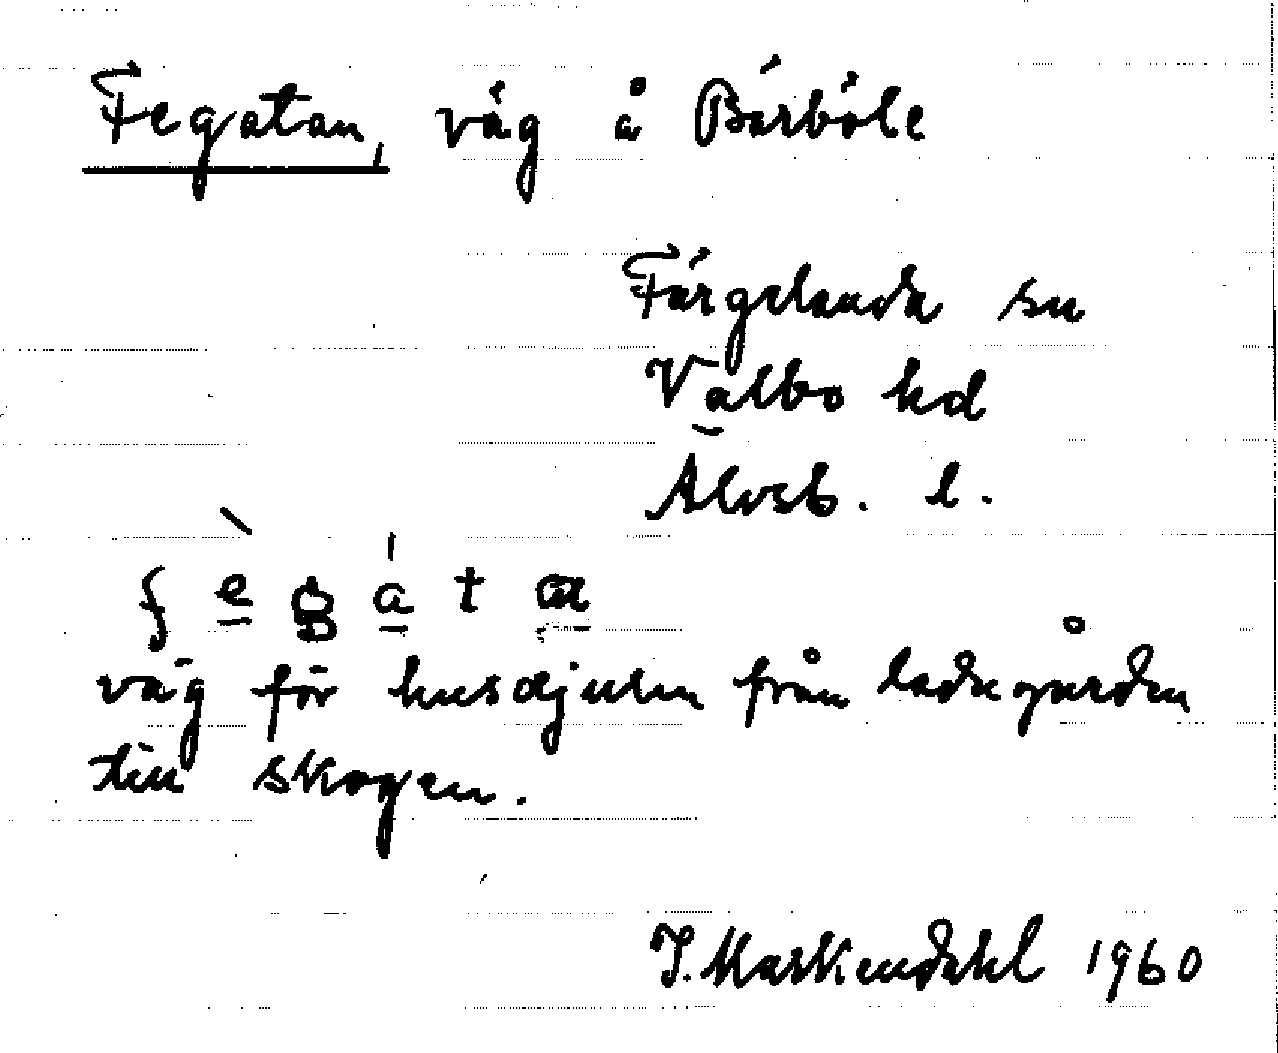 Fegatan, väg å Bärböle
Färgelanda sn
Valbo hd
Älvsb. l.
f è g á t æ
väg för husdjuren från ladugården
till skogen.
J. Markendahl 1960